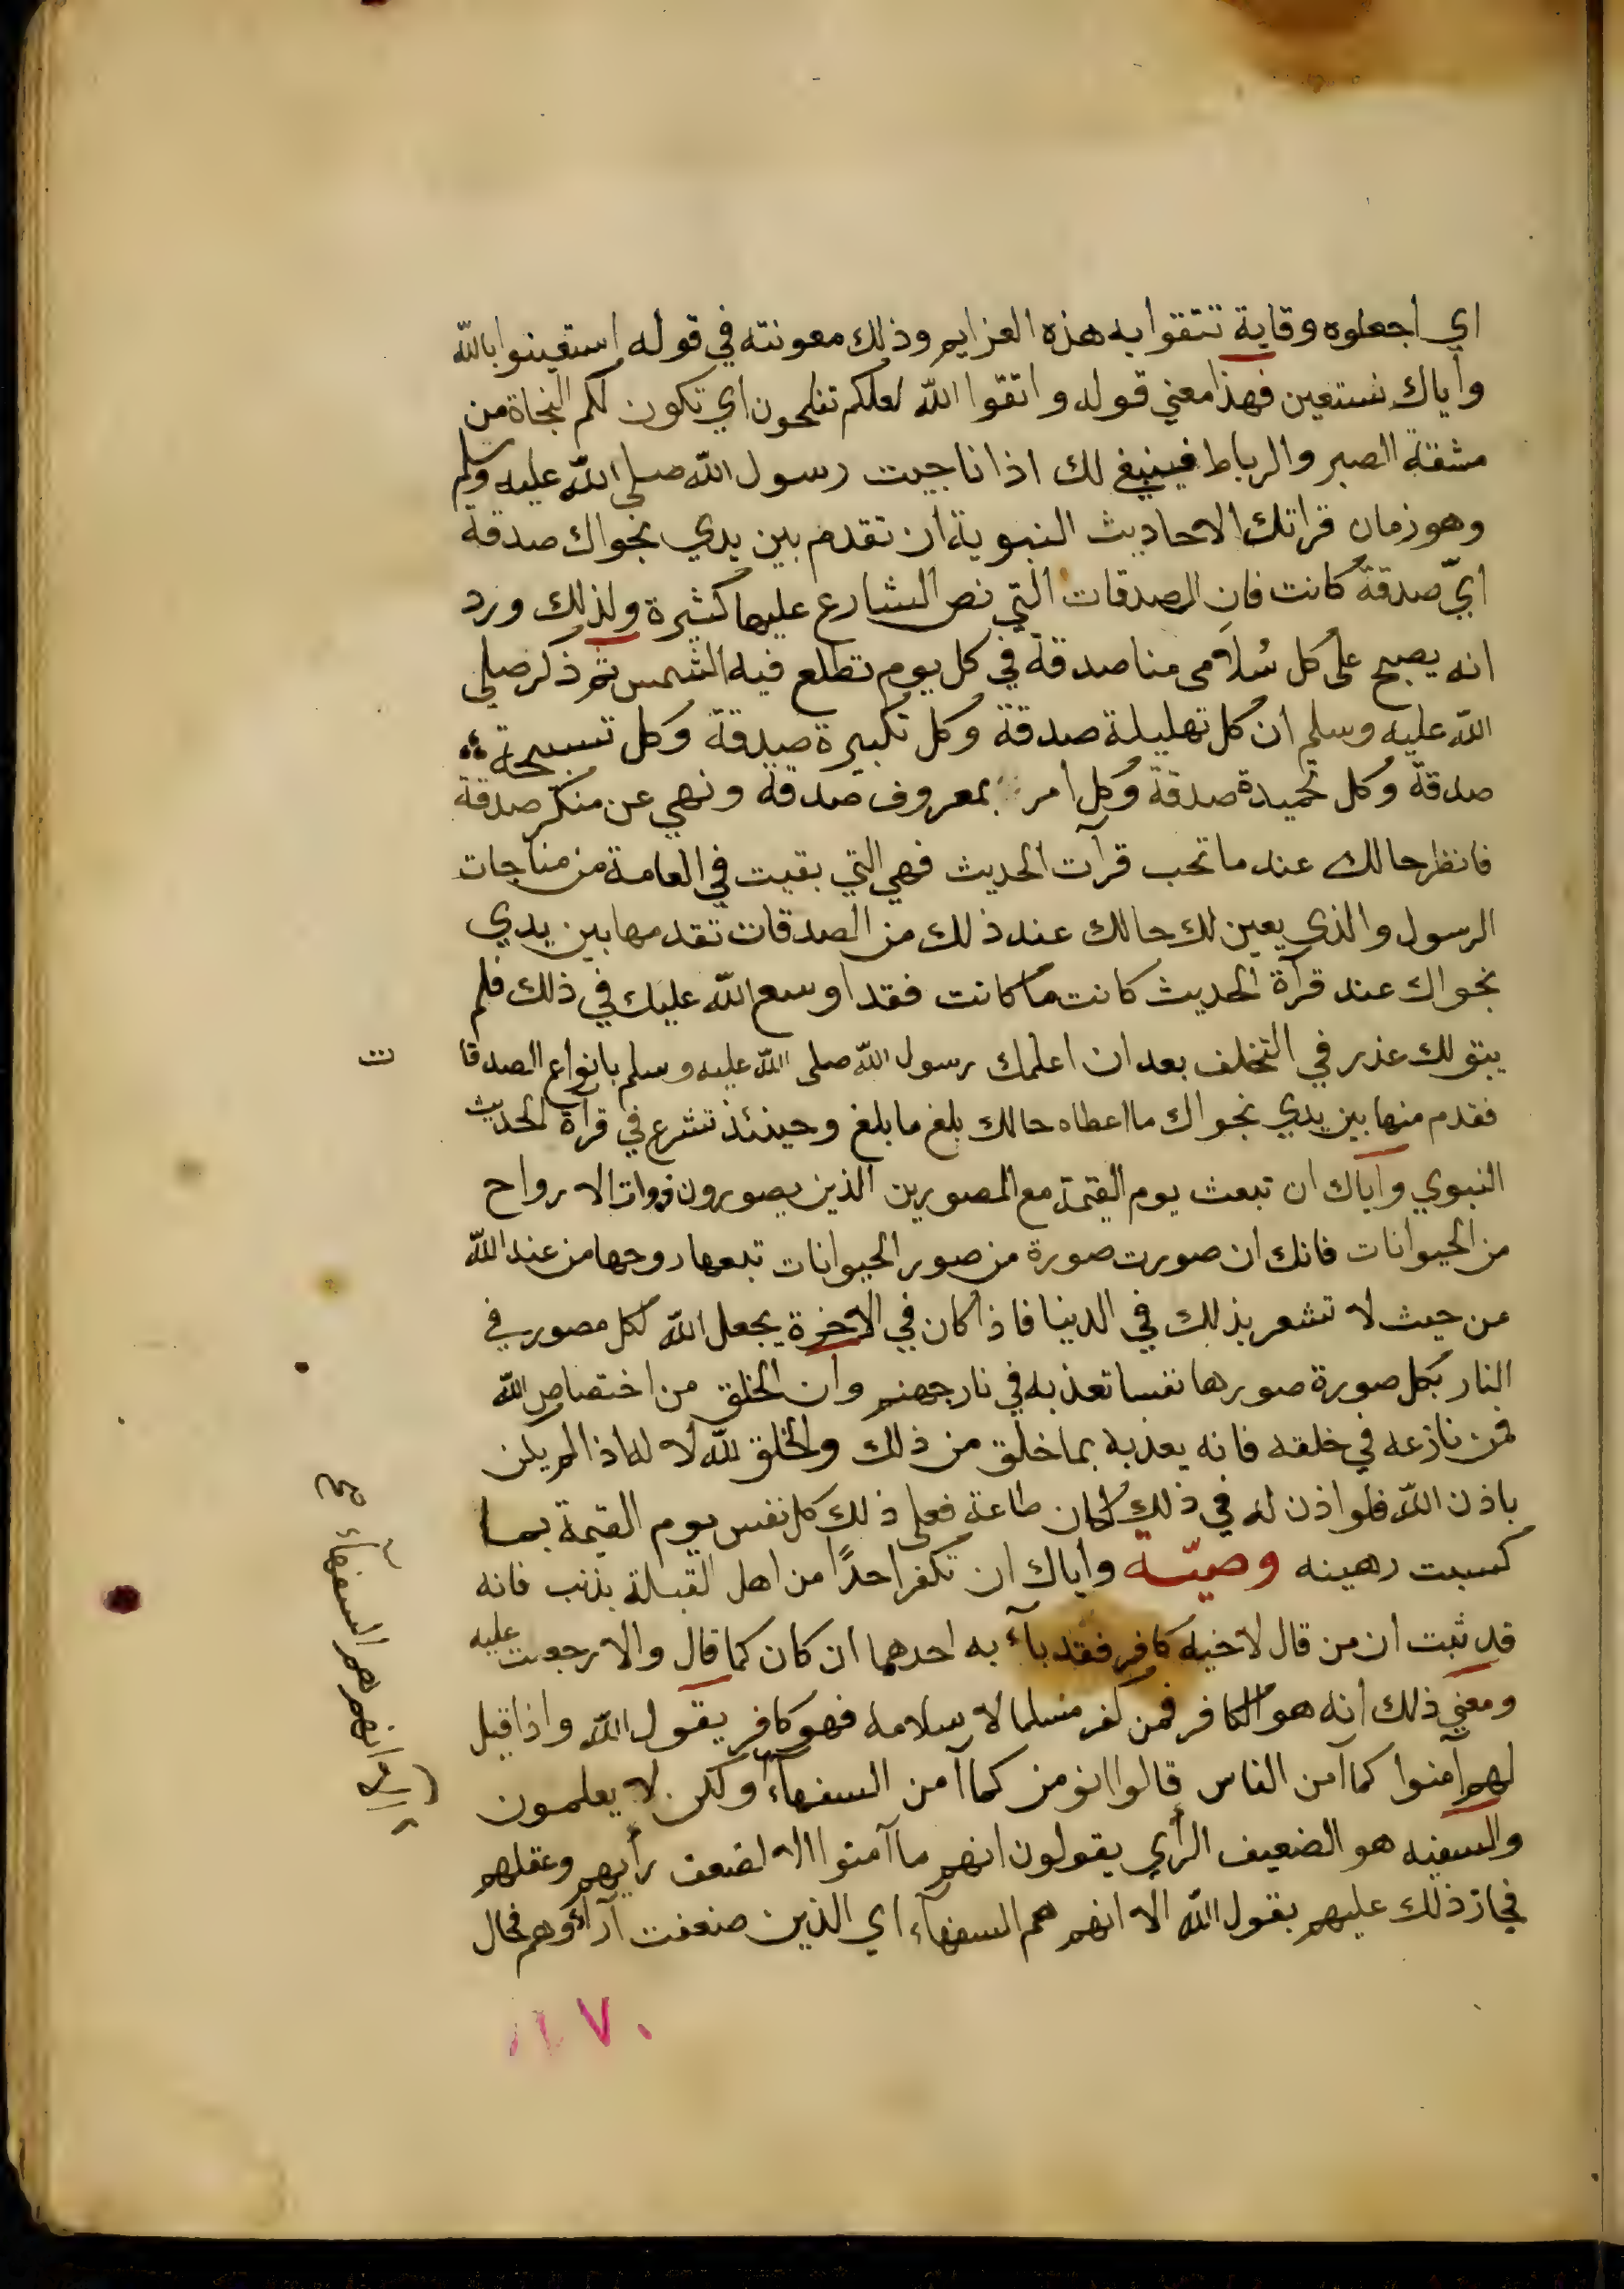 اي اجعلوه وقاية تتقوا به هذه العزايم وذلك معونته في قوله استعينوا بالله
واياك نستعين فهذا معني قوله واتقوا الله لعلكم تفلحون اي تكون لكم النجاة من
مشقة الصبر والرباط فينبغي لك اذا ناجيت رسول الله صلى الله عليه وسلم
وهو زمان قراتك الاحاديث النبوية ان تقدم بين يدي نجواك صدقة
ايّ صدقة كانت فان الصدقات التي نص الشارع عليها كثيرة ولذلك ورد
انه يصبح على كل سُلامى منا صدقة في كل يوم تطلع فيه الشمس ثم ذكر صلي
الله عليه وسلم ان كل تهليلة صدقة وكل تكبيرة صدقة وكل تسبيحة
صدقة وكل تحميدة صدقة وكل امر بمعروف صدقة ونهي عن منكر صدقة
فانظر حالك عند ما تحب قرآت الحديث فهي التي بقيت في العامة من مناجات
الرسول والذي يعين لك حالك عند ذلك من الصدقات تقدمها بين يدي
نجواك عند قرآة الحديث كانت ما كانت فقد اوسع الله عليك في ذلك فلم
يبق لك عذر في التخلف بعد ان اعلمك رسول الله صلى الله عليه وسلم بانواع الصدقات
فقدم منها بين يدي نجواك ما اعطاه حالك بلغ ما بلغ وحينئذ تشرع في قرآة الحديث
النبوي واياك ان تبعث يوم القيمة مع المصورين الذين يصورون ذوات الارواح
من الحيوانات فانك ان صورت صورة من صور الحيوانات تبعها روحها من عند الله
من حيث لا تشعر بذلك في الدينا فاذا كان في الاخرة يجعل الله لكل مصور في
النار بكل صورة صورها نفسا تعذبه في نار جهنم وان الخلق من اختصاص الله
فمن نازعه في خلقه فانه يعذبه بما خلق من ذلك والخلق لله لا له اذا لم يكن
باذن الله فلو اذن له في ذلك لكان طاعة فعلى ذلك كل نفس يوم القيمة بما
كسبت رهينه وصيّة واياك ان تكفر احدًا من اهل القبلة بذنب فانه
قد ثبت ان من قال لاخيه كافر فقد بآء به احدهما ان كان كما قال والا رجعت عليه
ومعني ذلك انه هو الكافر فمن كفر مسلما لاسلامه فهو كافر يقول الله واذا قيل
لهم آمنوا كما آمن الناس قالوا انومن كما آمن السفهآء ولكن لا يعلمون
والسفيه هو الضعيف الرأي يقولون انهم ما آمنوا الا لضعف رأيهم وعقلهم
فجاز ذلك عليهم بقول الله الا انهم هم السفهآء اي الذين ضعفت آراؤهم فحال
الا انهم هم السفهآء صح